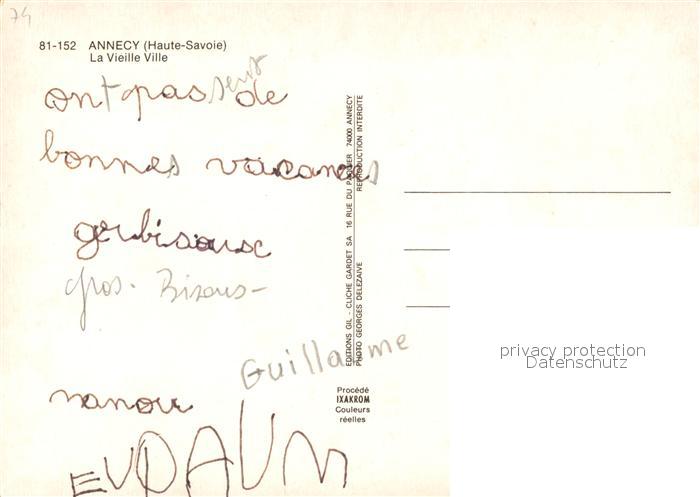 74
81-152 ANNECY (Haute-Savoie)
La Vieille Ville
ont pas sent de
bonnes vacances
gerbisousc
gros. Bisous-
Guillaume
manou
EDITIONS GIL - CLICHE GARDET SA 16 RUE DU PAQUIER 74000 ANNECY
PHOTO GEORGES DELEZAIVE REPRODUCTION INTERDITE
Procédé
IXAKROM
Couleurs
réelles
privacy protection
Datenschutz